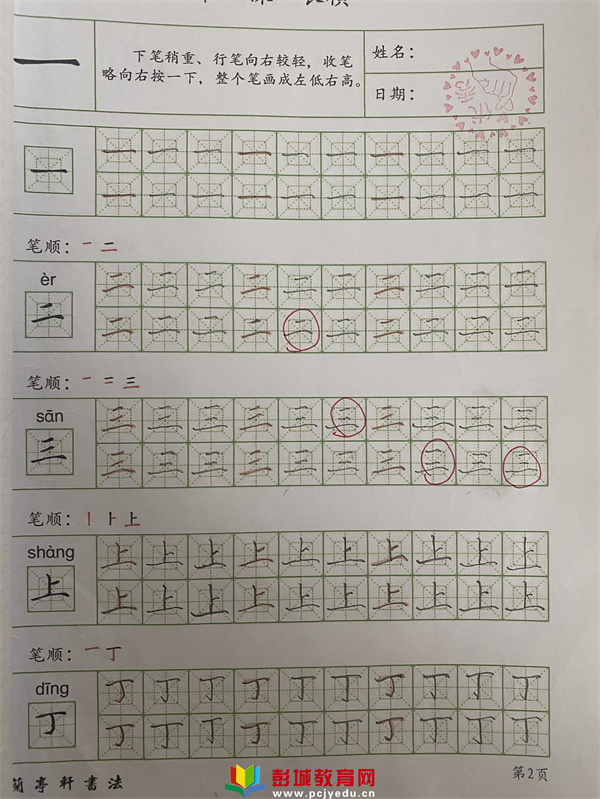 一
下笔稍重、行笔向右较轻,收笔
略向右按一下,整个笔画成左低右高。
姓名:
日期:
一 一 一 一 一 一 一 一 一 一 一
一 一 一 一 一 一 一 一 一 一
笔顺: 一 二
èr
二 二 二 二 二 二 二 二 二 二 二
二 二 二 二 二 二 二 二 二 二
笔顺: 一 二 三
sān
三 三 三 三 三 三 三 三 三 三 三
三 三 三 三 三 三 三 三 三 三
笔顺: 丨 卜 上
shàng
上 上 上 上 上 上 上 上 上 上 上
上 上 上 上 上 上 上 上 上 上
笔顺: 一 丁
dīng
丁 丁 丁 丁 丁 丁 丁 丁 丁 丁 丁
丁 丁 丁 丁 丁 丁 丁 丁 丁 丁
蘭亭軒書法
第2页
彭城教育网
www.pcjyedu.cn